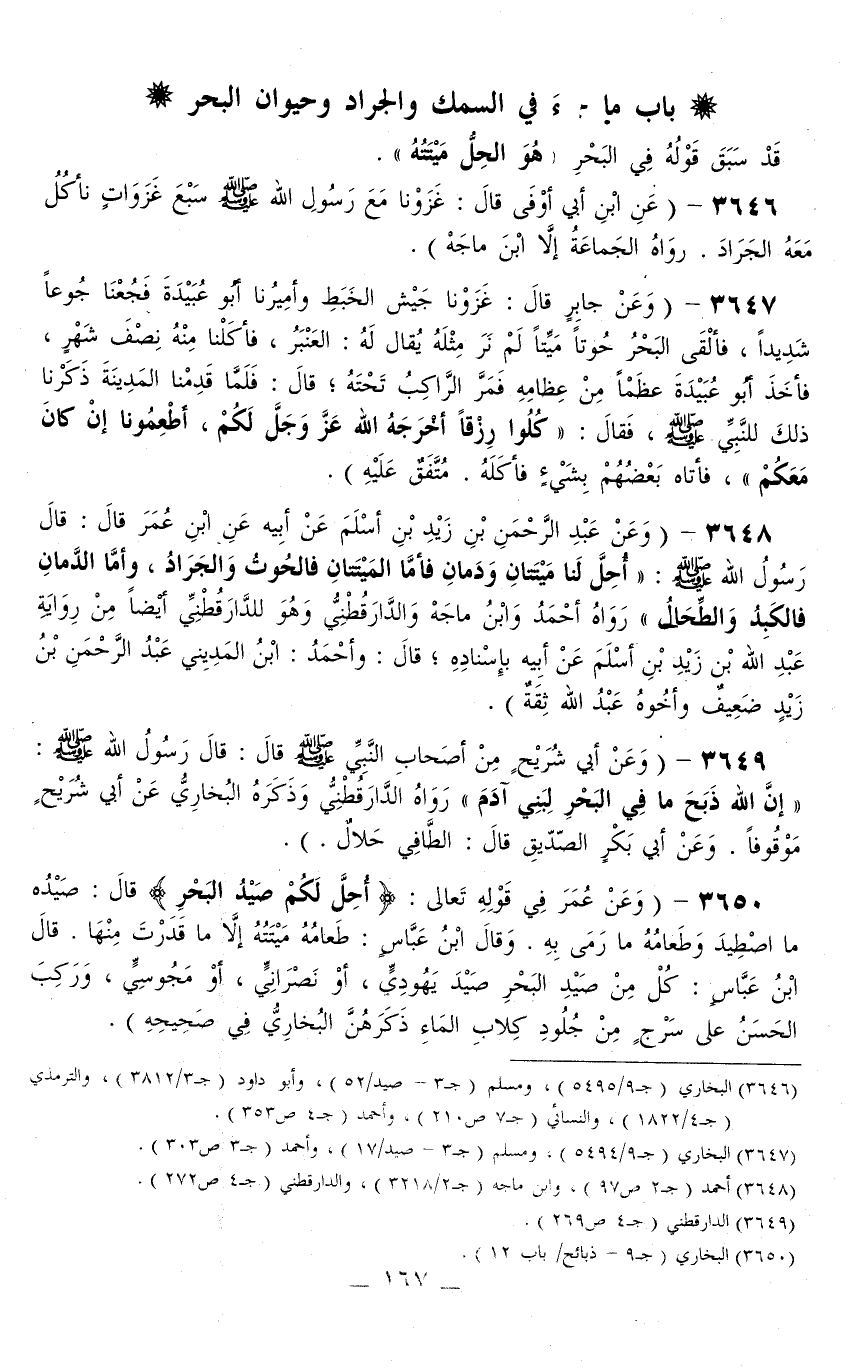 باب ما ء في السمك والجراد وحيوان البحر
قَدْ سَبَقَ قَوْلُهُ فِي البَحْرِ ( هُوَ الحِلُّ مَيْتَتُهُ » .
٣٦٤٦ – ( عَنِ ابْنِ أبي أوْفَى قالَ : غَزَوْنا مَعَ رَسُولِ الله ﷺ سَبْعَ غَزَوَاتٍ نأكُلُ
مَعَهُ الجَرَادَ . رواهُ الجَماعَةُ إلَّا ابْنَ ماجَهْ ) .
٣٦٤٧ – ( وَعَنْ جابِرٍ قالَ : غَزَوْنا جَيْشَ الخَبَطِ وأمِيرُنا أبُو عُبَيْدَةَ فَجُعْنَا جُوعاً
شَدِيداً ، فألْقَى البَحْرُ حُوتاً مَيِّتاً لَمْ نَرَ مِثْلَهُ يُقال لَهُ : العَنْبَرُ ، فأكَلْنا مِنْهُ نِصْفَ شَهْرٍ ،
فأخَذَ أبُو عُبَيْدَةَ عظْماً مِنْ عِظامِهِ فَمَرَّ الرَّاكِبُ تَحْتَهُ ؛ قالَ : فَلَمَّا قَدِمْنا المَدِينَةَ ذَكَرْنا
ذلكَ للنَّبِيِّ ﷺ ، فَقالَ : « كُلُوا رِزْقاً أخْرَجَهُ الله عَزَّ وَجَلَّ لَكُمْ ، أطْعِمُونا إنْ كانَ
مَعَكُمْ » ، فأتاه بَعْضُهُمْ بِشَيْءٍ فأكَلَهُ . مُتَّفَقٌ عَلَيْهِ ) .
٣٦٤٨ – ( وَعَنْ عَبْدِ الرَّحْمَنِ بْنِ زَيْدِ بْنِ أسْلَمَ عَنْ أبيه عَنِ ابْنِ عُمَرَ قالَ : قالَ
رَسُولُ الله ﷺ : « أُحِلَّ لَنا مَيْتَتانِ وَدَمانِ فأمَّا المَيْتَتانِ فالحُوتُ وَالجَرَادُ ، وأمَّا الدَّمانِ
فالكَبِدُ وَالطِّحَالُ » رَوَاهُ أحْمَدُ وَابْنُ ماجَهْ وَالدَّارَقُطْنِيُّ وَهُوَ للدَّارَقُطْنِيِّ أيْضاً مِنْ رِوَايَةِ
عَبْدِ الله بْنِ زَيْدِ بْنِ أسْلَمَ عَنْ أبيه بإسْنادِهِ ؛ قالَ : وأحْمَدُ : ابْنُ المَدِيني عَبْدُ الرَّحْمَنِ بْنُ
زَيْدٍ ضَعِيفٌ وأخُوهُ عَبْدُ الله ثِقَةٌ ) .
٣٦٤٩ – ( وَعَنْ أبي شُرَيْحٍ مِنْ أصحَابِ النَّبِيِّ ﷺ قالَ : قالَ رَسُولُ الله ﷺ :
« إنَّ الله ذَبَحَ ما فِي البَحْرِ لِبَنِي آدَمَ » رَوَاهُ الدَّارَقُطْنِيُّ وَذَكَرَهُ البُخاريُّ عَنْ أبي شُرَيْحٍ
مَوْقُوفاً . وَعَنْ أبي بَكْرٍ الصّدّيقِ قالَ : الطَّافِي حَلالٌ . ) .
٣٦٥٠ – ( وَعَنْ عُمَرَ فِي قَوْلِهِ تَعالى : ﴿ أُحِلَّ لَكُمْ صَيْدُ البَحْرِ ﴾ قالَ : صَيْدُه
ما اصْطِيدَ وَطَعامُهُ ما رَمَى بِهِ . وَقالَ ابْنُ عَبَّاسٍ : طَعامُهُ مَيْتَتُهُ إلَّا ما قَذَرْتَ مِنْهَا . قالَ
ابْنُ عَبَّاسٍ : كُلْ مِنْ صَيْدِ البَحْرِ صَيْدَ يَهُودِيٍّ ، أوْ نَصْرَانِيٍّ ، أوْ مَجُوسيٍّ ، وَرَكِبَ
الحَسَنُ على سَرْجٍ مِنْ جُلُودِ كِلابِ المَاءِ ذَكَرَهُنَّ البُخاريُّ فِي صَحِيحِهِ ) .
(٣٦٤٦) البخاري ( جـ٥٤٩٥/٩ ) ، ومسلم ( جـ٣ – صيد/٥٢ ) ، وأبو داود ( جـ٣٨١٢/٣ ) ، والترمذي
( جـ١٨٢٢/٤ ) ، والنسائي ( جـ٧ ص٢١٠ ) ، وأحمد ( جـ٤ ص٣٥٣ ) .
(٣٦٤٧) البخاري ( جـ٥٤٩٤/٩ ) ، ومسلم ( جـ٣ – صيد/١٧ ) ، وأحمد ( جـ٣ ص٣٠٣ ) .
(٣٦٤٨) أحمد ( جـ٢ ص٩٧ ) ، وابن ماجه ( جـ٣٢١٨/٢ ) ، والدارقطني ( جـ٤ ص٢٧٢ ) .
(٣٦٤٩) الدارقطني ( جـ٤ ص٢٦٩ ) .
(٣٦٥٠) البخاري ( جـ٩ – ذبائح/ باب ١٢ ) .
_ ١٦٧ _